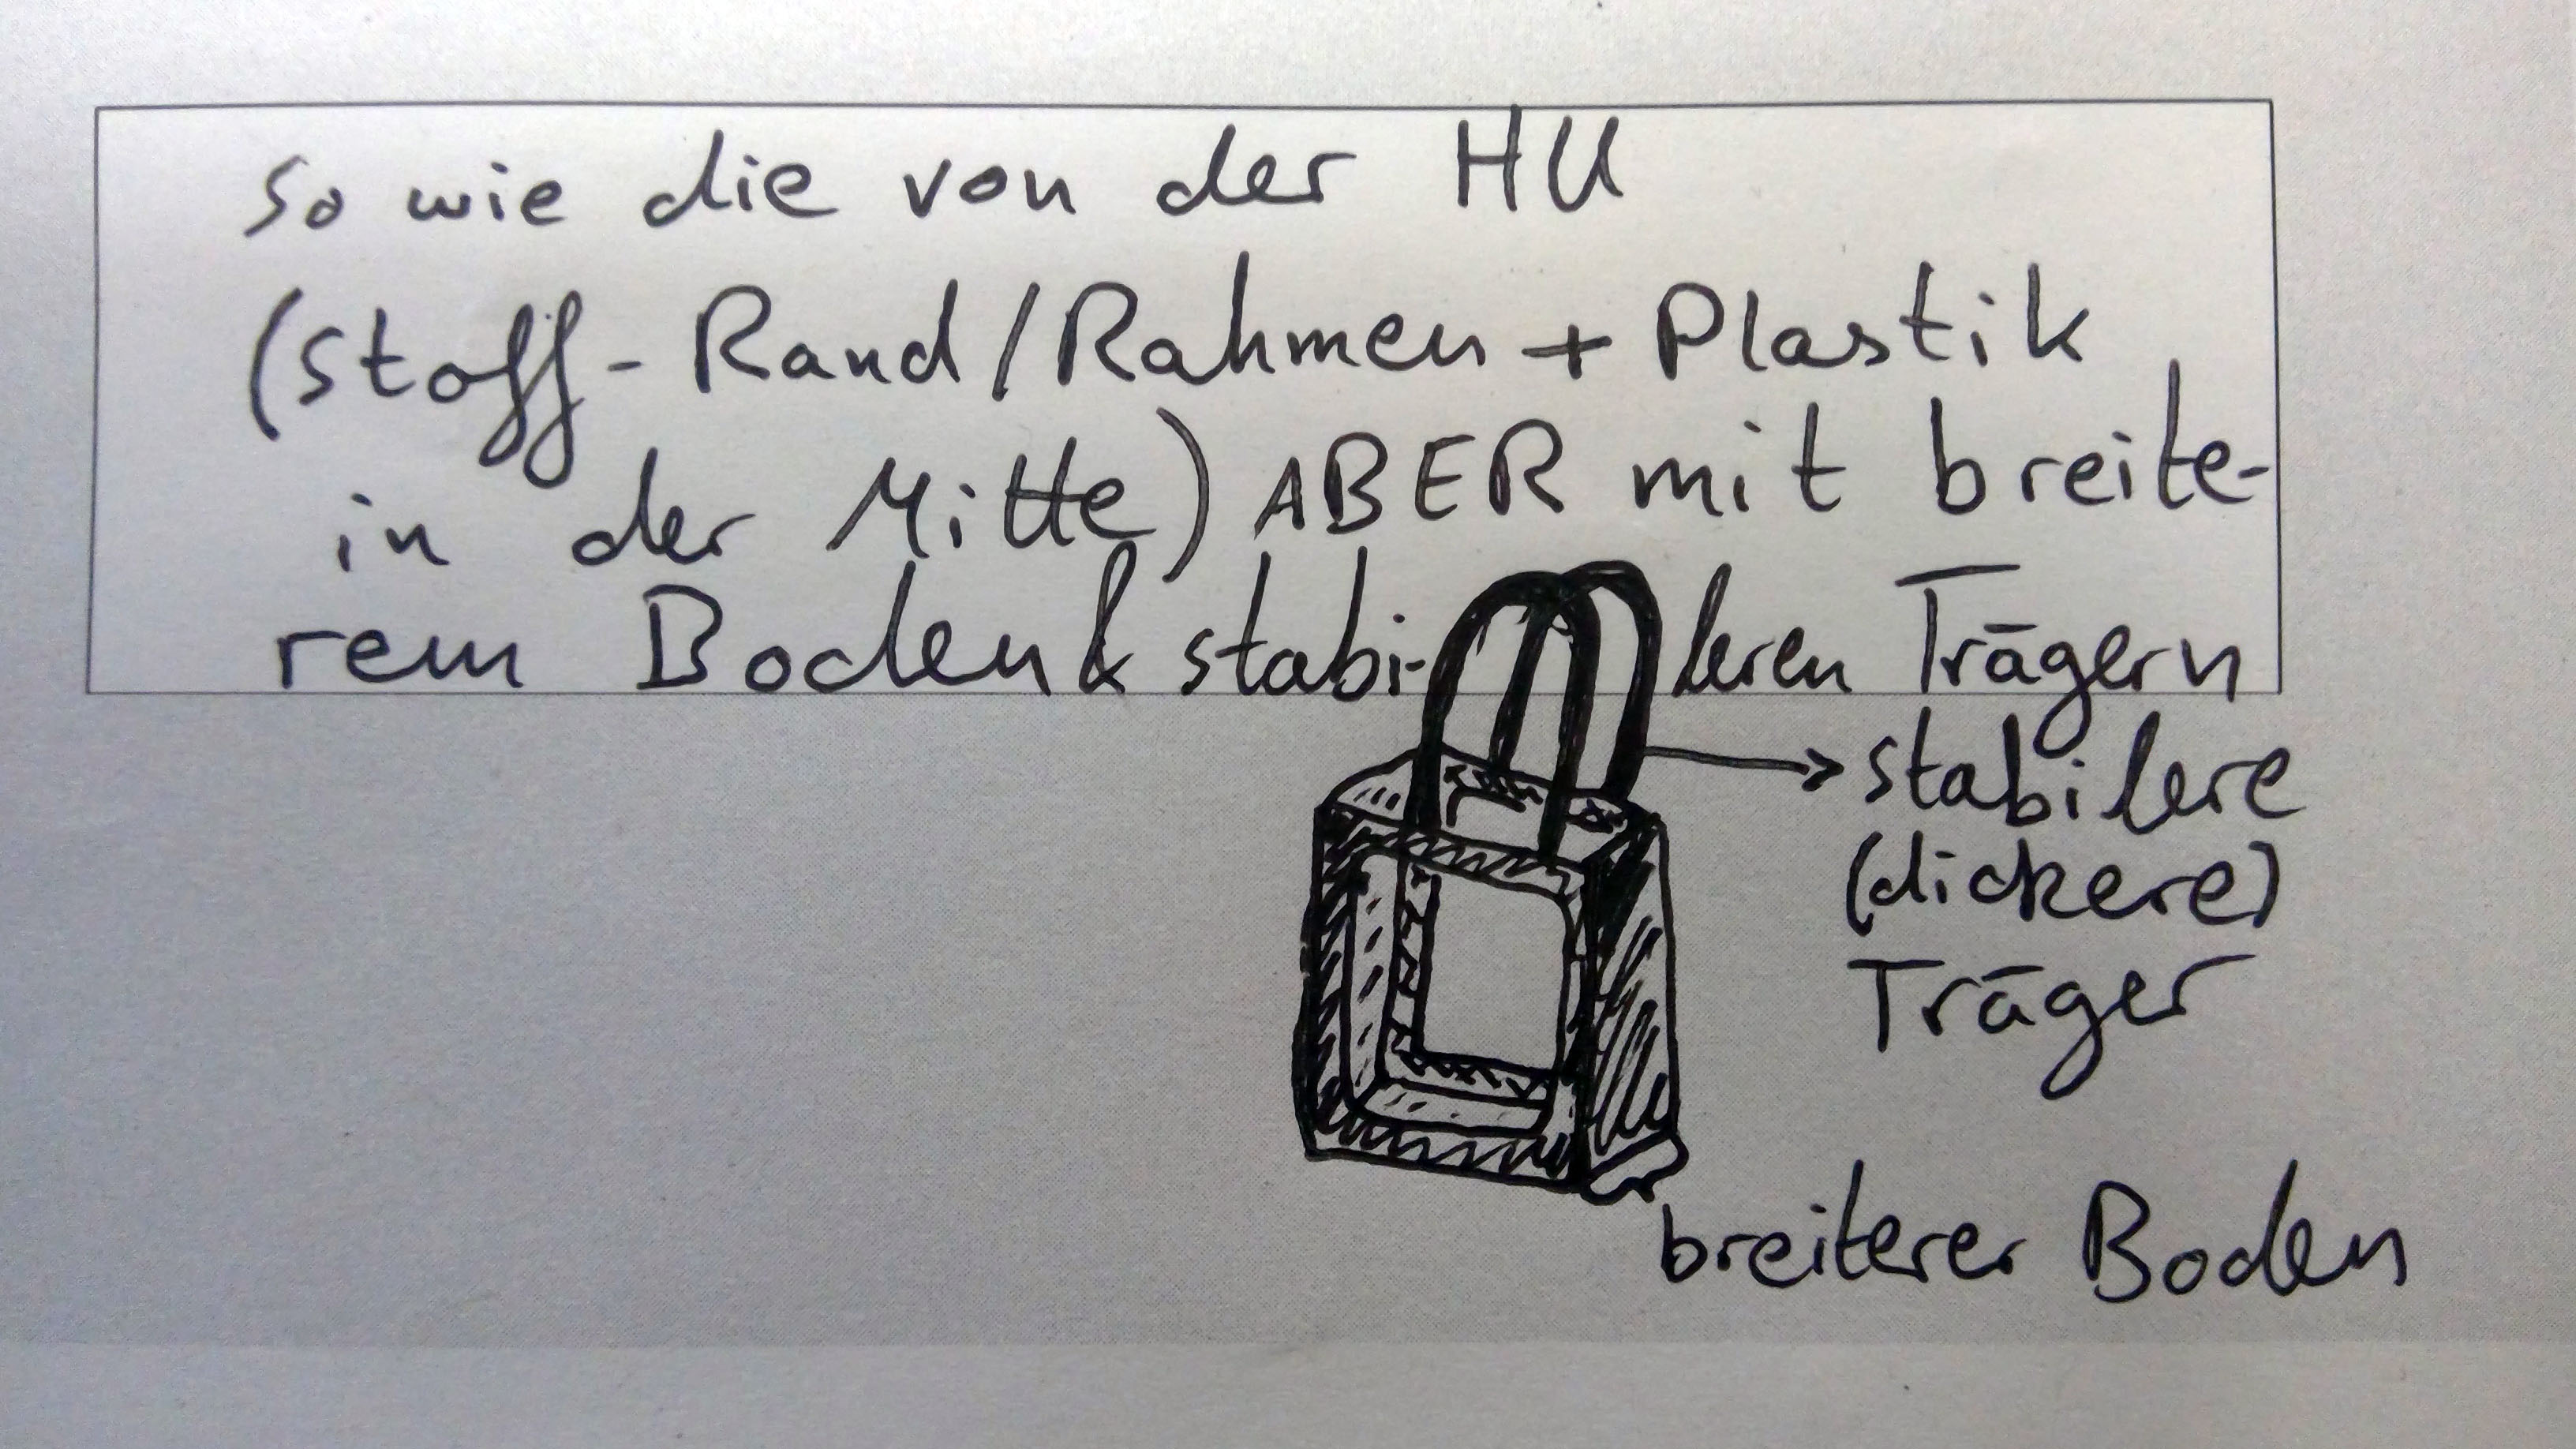 So wie die von der HU
(Stoff-Rand/Rahmen + Plastik
in der Mitte) ABER mit breite-
rem Boden & stabi- leren Trägern
stabilere
(dickere)
Träger
breiterer Boden